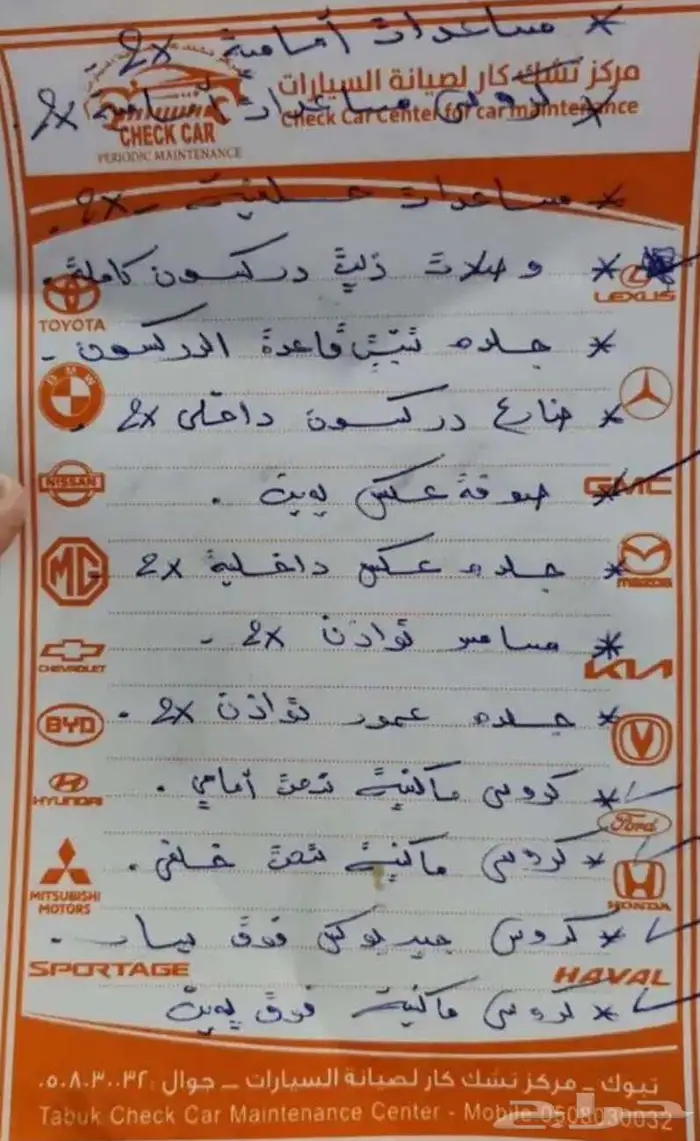 * مساعدات أمامية 2x
مركز تشك كار لصيانة السيارات
Check Car Center for car maintenance
CHECK CAR
PERIODIC MAINTENANCE
* كروس مساعدات أمامية 2x
* مساعدات خلفية - 2x.
* وصلات زيت دركسون كاملة.
LEXUS
TOYOTA
* جلده تثبيت قاعدة الدركسون -
BMW
* ضارع دركسون داخلي 2x.
NISSAN
GMC
* صوفة عكس يمين.
MG
mazda
* جلده عكس داخلية 2x
* مسامير توازن 2x -
CHEVROLET
KIA
* جلده عمود توازن 2x.
BYD
HYUNDAI
* كروس ماكنية تحت أمامي.
Ford
* كروس ماكنية تحت خلفي.
MITSUBISHI
MOTORS
HONDA
* كروس جيربوكس فوق يسار.
SPORTAGE
HAVAL
* كروس ماكنية فوق يمين
تبوك - مركز تشك كار لصيانة السيارات - جوال: ٠٥٠٨٠٣٠٠٣٢
Tabuk Check Car Maintenance Center - Mobile 0508030032
حراج